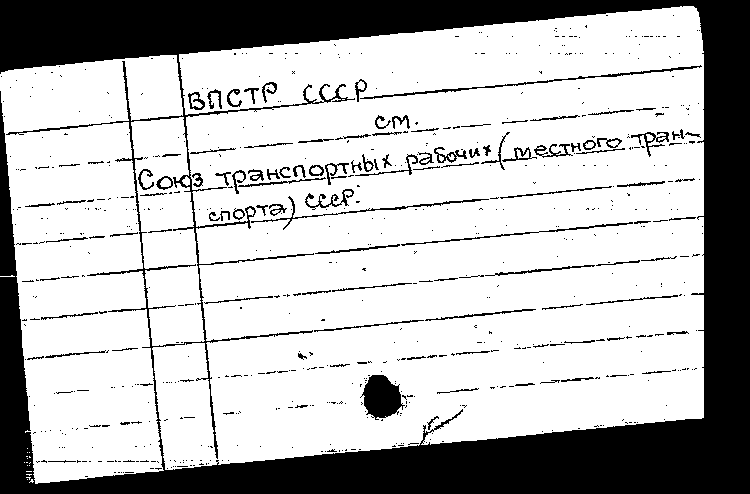 ВПСТР СССР
см.
Союз транспортных рабочих (местного тран-
спорта) СССР.